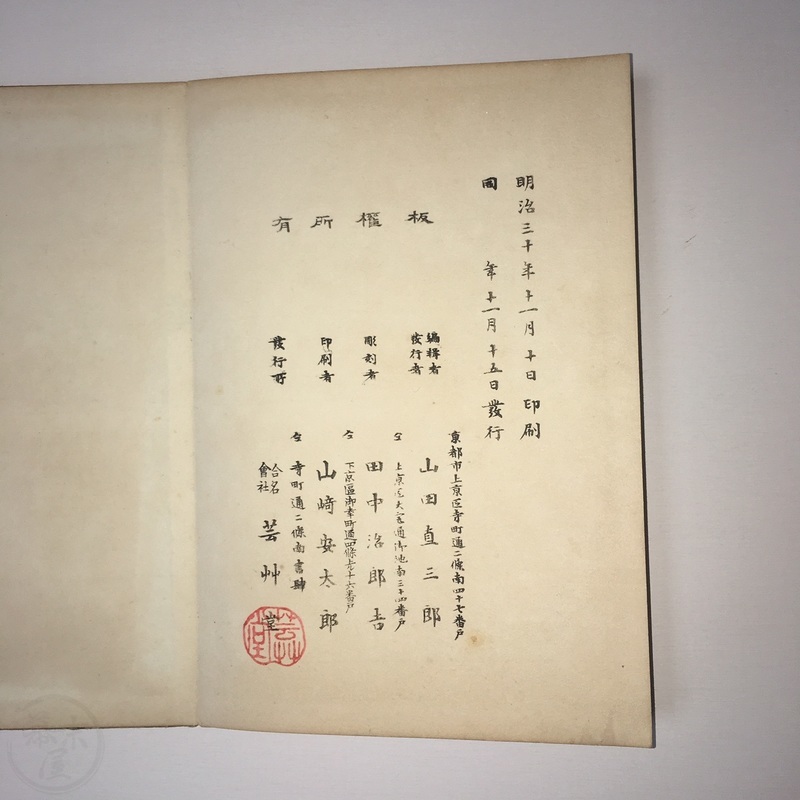 明治三十年十一月十日印刷
同年十一月十五日發行
板權所有
編輯者
發行者
京都市上京區寺町通二條南四十七番戸
山田直三郎
彫刻者
仝上京區大宮通御池南三十四番戸
田中治郎吉
印刷者
仝下京區御幸町通四條上十六番戸
山﨑安太郎
發行所
仝寺町通二條南書肆
合名會社
芸艸堂
芸艸堂